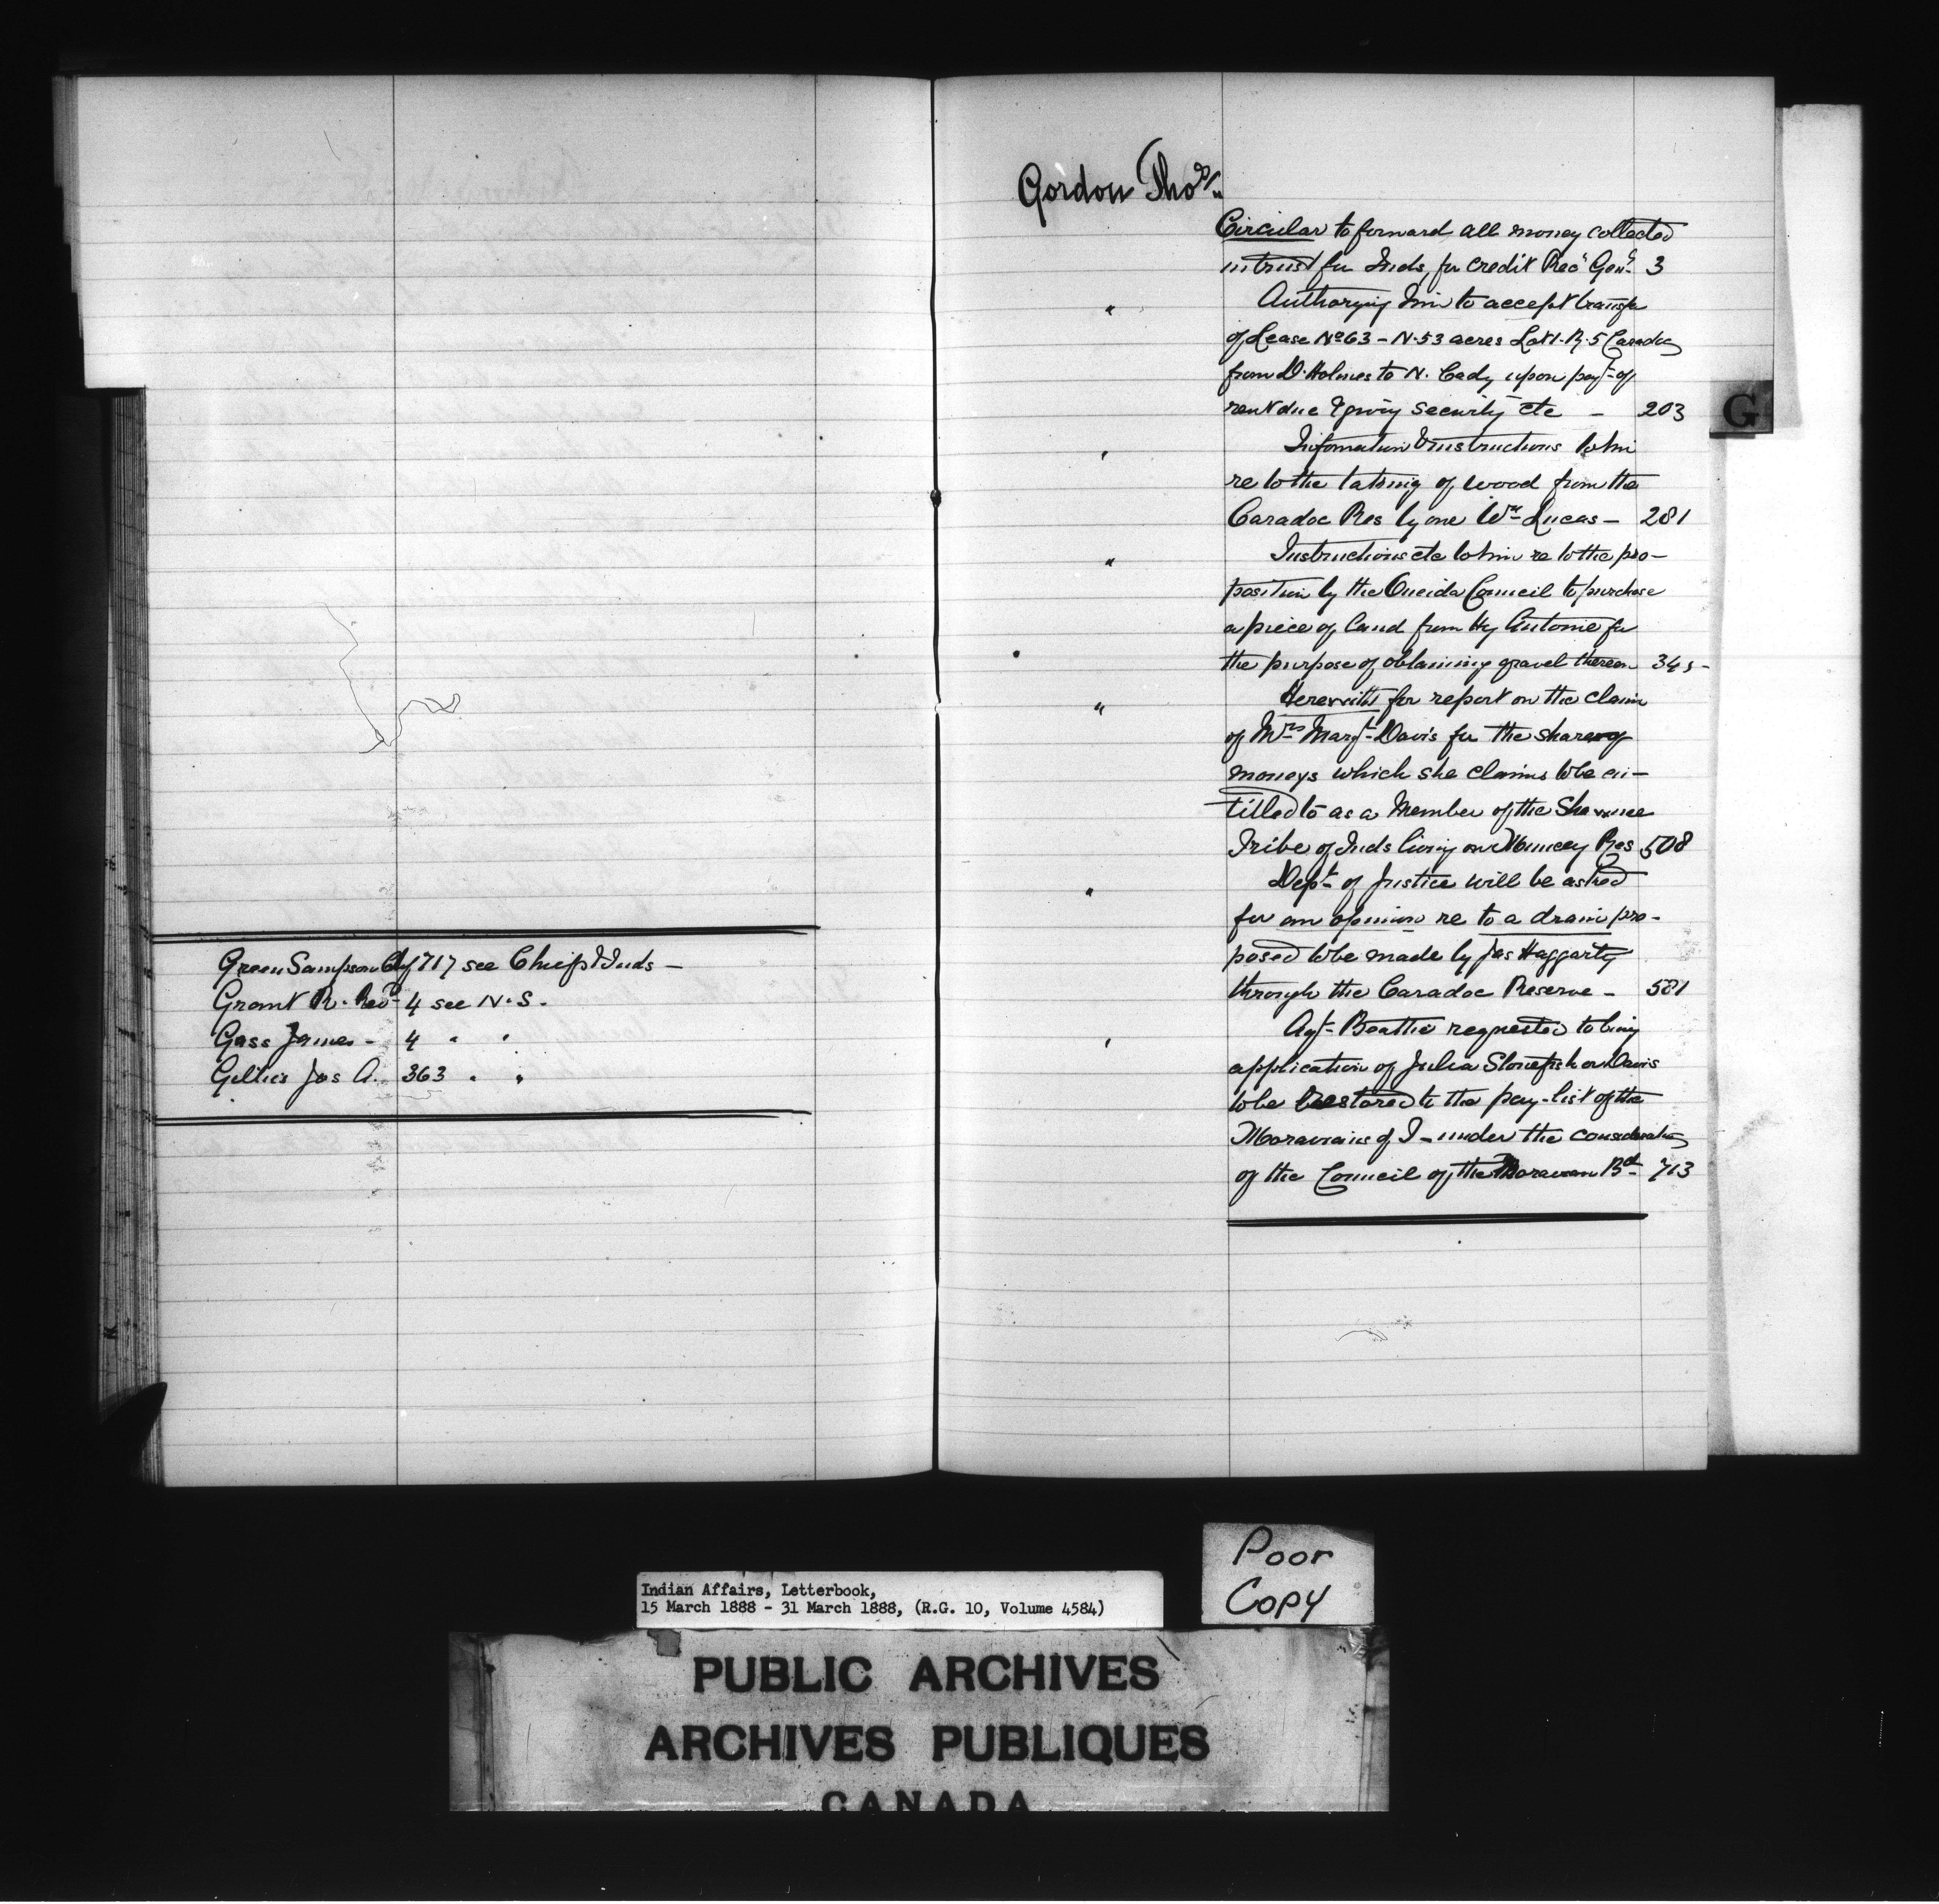 Green Sampson Chf 717 see Chiefs & Inds -
Grant R. Revd - 4 see N. S.
Gass James - 4 " "
Gillies Jos A. 363 " "
Gordon Thos
Circular to forward all money collected
in trust for Inds, for credit Rec Genl 3
" Authorizing him to accept transfer
of Lease No 63 - N. 53 acres Lot 1. R. 5 Caradoc
from D. Holmes to N. Cady upon payt of
rent due & giving security etc - 203
" Information & instructions to him
re to the taking of wood from the
Caradoc Res by one Wm Lucas - 281
" Instructions etc to him re to the pro-
position by the Oneida Council to purchase
a piece of land from Hy Antonie for
the purpose of obtaining gravel thereon 345 -
" Herewith for report on the claim
of Mrs Margt Davis for the share of
moneys which she claims to be en-
titled to as a Member of the Shawnee
Tribe of Inds living on Muncey Res 508
" Dept of Justice will be asked
for an opinion re to a drain pro-
posed to be made by Jas Haggarty
through the Caradoc Reserve - 581
" Agt Beattie requested to bring
application of Julia Stonefish or Davis
to be restored to the pay-list of the
Moravians of T - under the consideration
of the Council of the Moravian Bd - 713
G
Poor
Copy
Indian Affairs, Letterbook,
15 March 1888 - 31 March 1888, (R.G. 10, Volume 4584)
PUBLIC ARCHIVES
ARCHIVES PUBLIQUES
CANADA